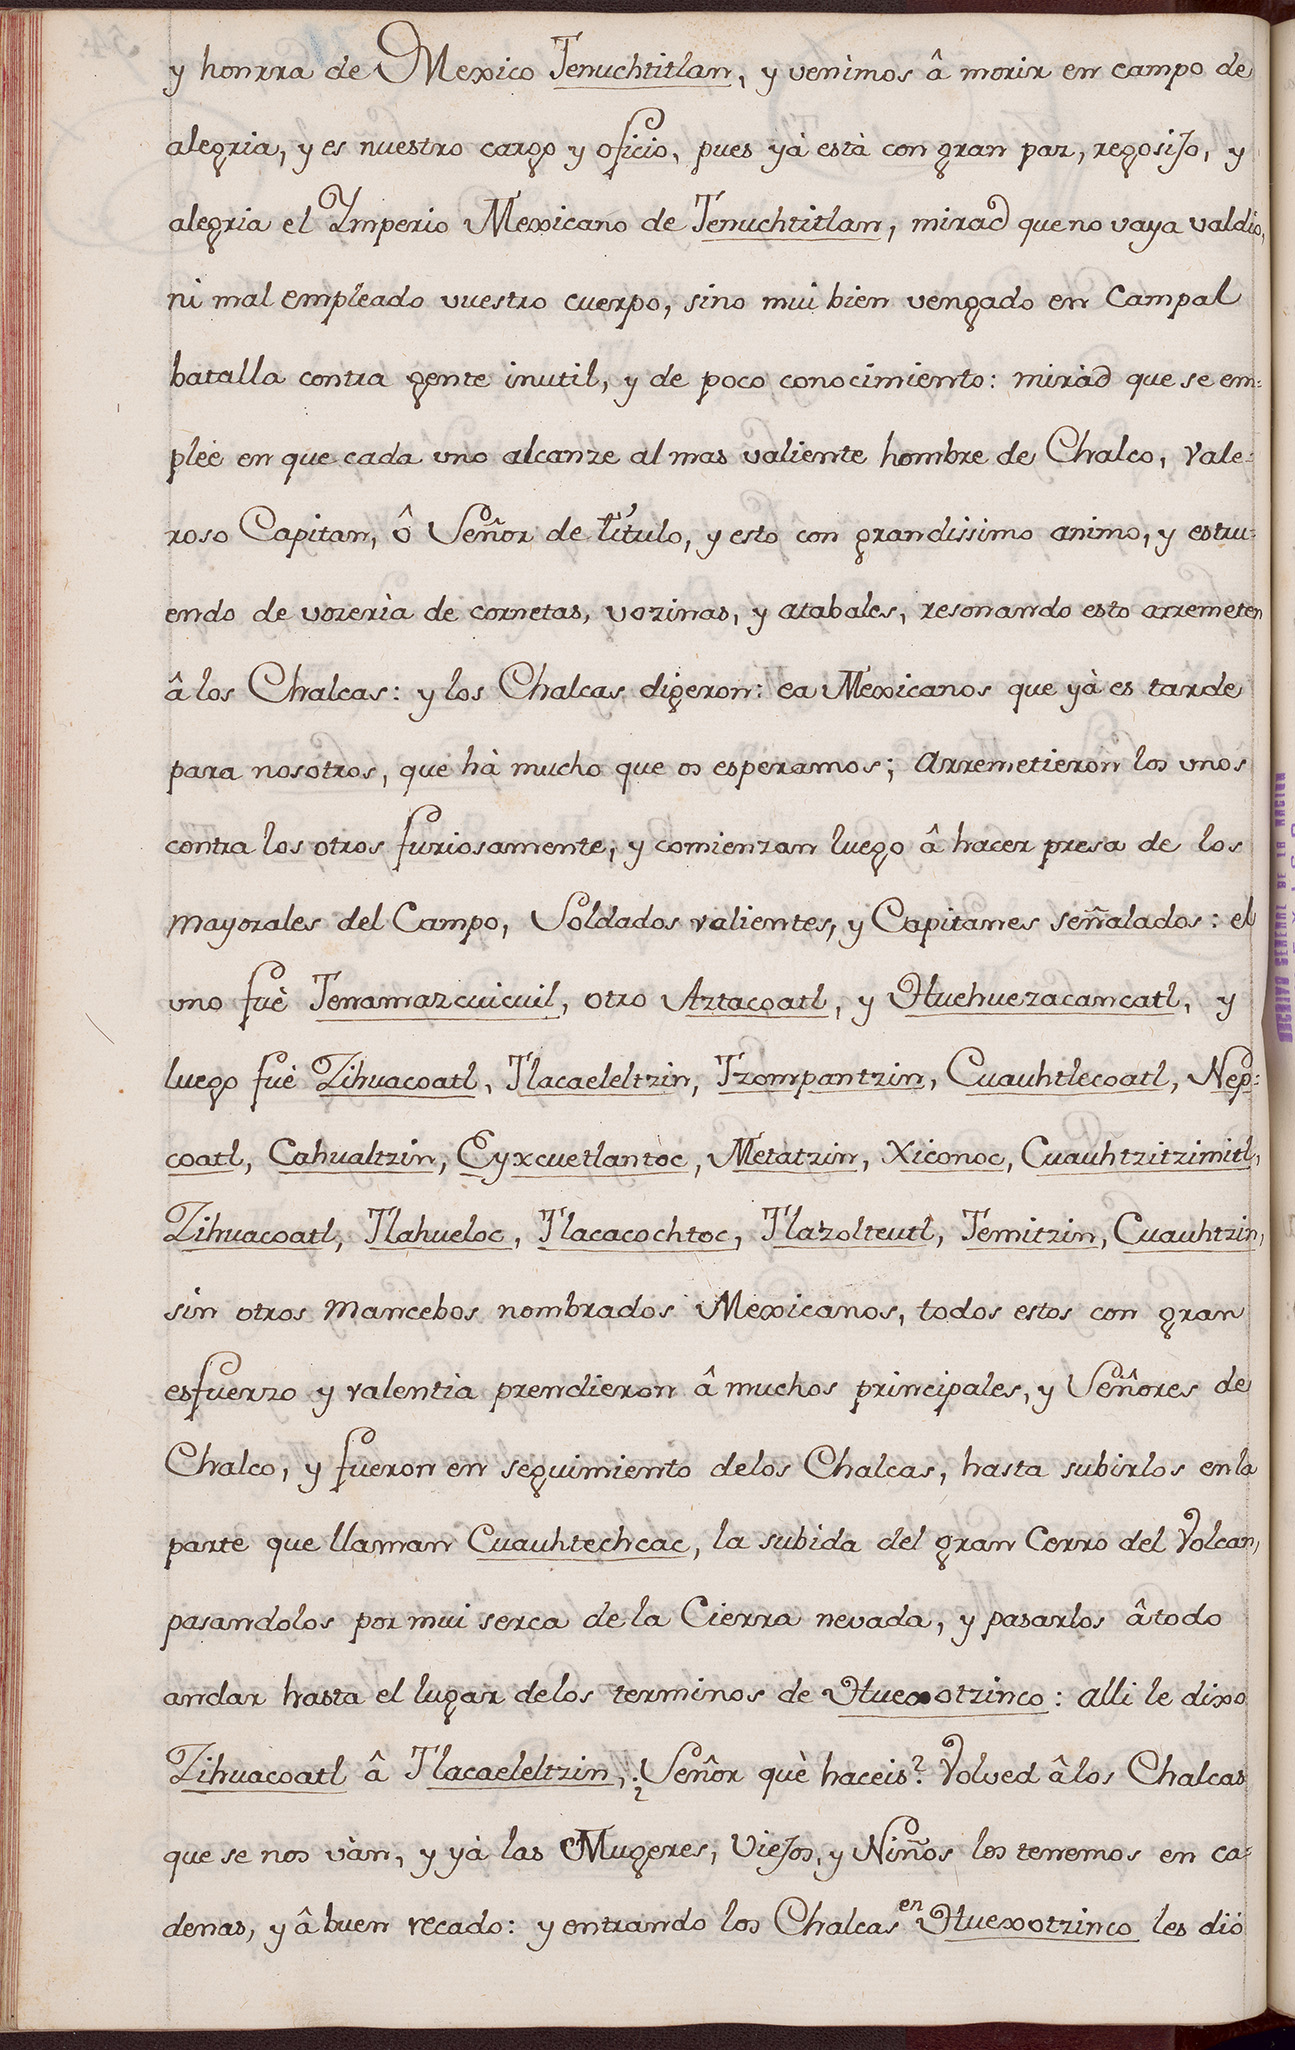 y honrra de Mexico Tenuchtitlan, y venimos â morir en campo de
alegria, y es nuestro cargo y oficio, pues yà està con gran paz, regosiJo, y
alegria el Ymperio Mexicano de Tenuchtitlan, mirad que no vaya valdio,
ni mal empleado vuestro cuerpo, sino mui bien vengado en Campal
batalla contra gente inutil, y de poco conocimiento: miràd que se em=
plèe en que cada uno alcanze al mas valiente hombre de Chalco, Vale=
roso Capitan, ô Señor de titulo, y esto con grandissimo animo, y estru=
endo de vozerìa de cornetas, vozinas, y atabales, resonando esto arremeten
â los Chalcas: y los Chalcas digeron: ea Mexicanos que yà es tarde
para nosotros, que hà mucho que os esperamos; Arremetieron los unos
contra los otros furiosamente, y comienzan luego â hacer presa de los
mayorales del Campo, Soldados valientes, y Capitanes señalados: el
uno fuè Tenamazcuicuil, otro Aztacoatl, y Huehuezacancatl, y
luego fuè Zihuacoatl, Tlacaeleltzin, Tzompantzin, Cuauhtlecoatl, Nep=
coatl, Cahualtzin, Eyxcuetlantoc, Metatzin, Xiconoc, Cuauhtzitzimitl,
Zihuacoatl, Tlahueloc, Tlacacochtoc, Tlazolteutl, Temitzin, Cuauhtzin,
sin otros mancebos nombrados Mexicanos, todos estos con gran
esfuerzo y valentìa prendieron â muchos principales, y Señores de
Chalco, y fueron en seguimiento delos Chalcas, hasta subirlos en la
parte que llaman Cuauhtechcac, la subida del gran Cerro del Volcan,
pasandolos por mui serca de la Cierra nevada, y pasarlos âtodo
andar hasta el lugar delos terminos de Huexotzinco: alli le dixo
Zihuacoatl â Tlacaeleltzin, ¿Señor què haceis? Volved âlos Chalcas
que se nos vàn, y yà las Mugeres, VieJos, y Niños los tenemos en ca=
denas, y â buen recado: y entrando los Chalcas en Huexotzinco les diò
ARCHIVO GENERAL DE LA NACION